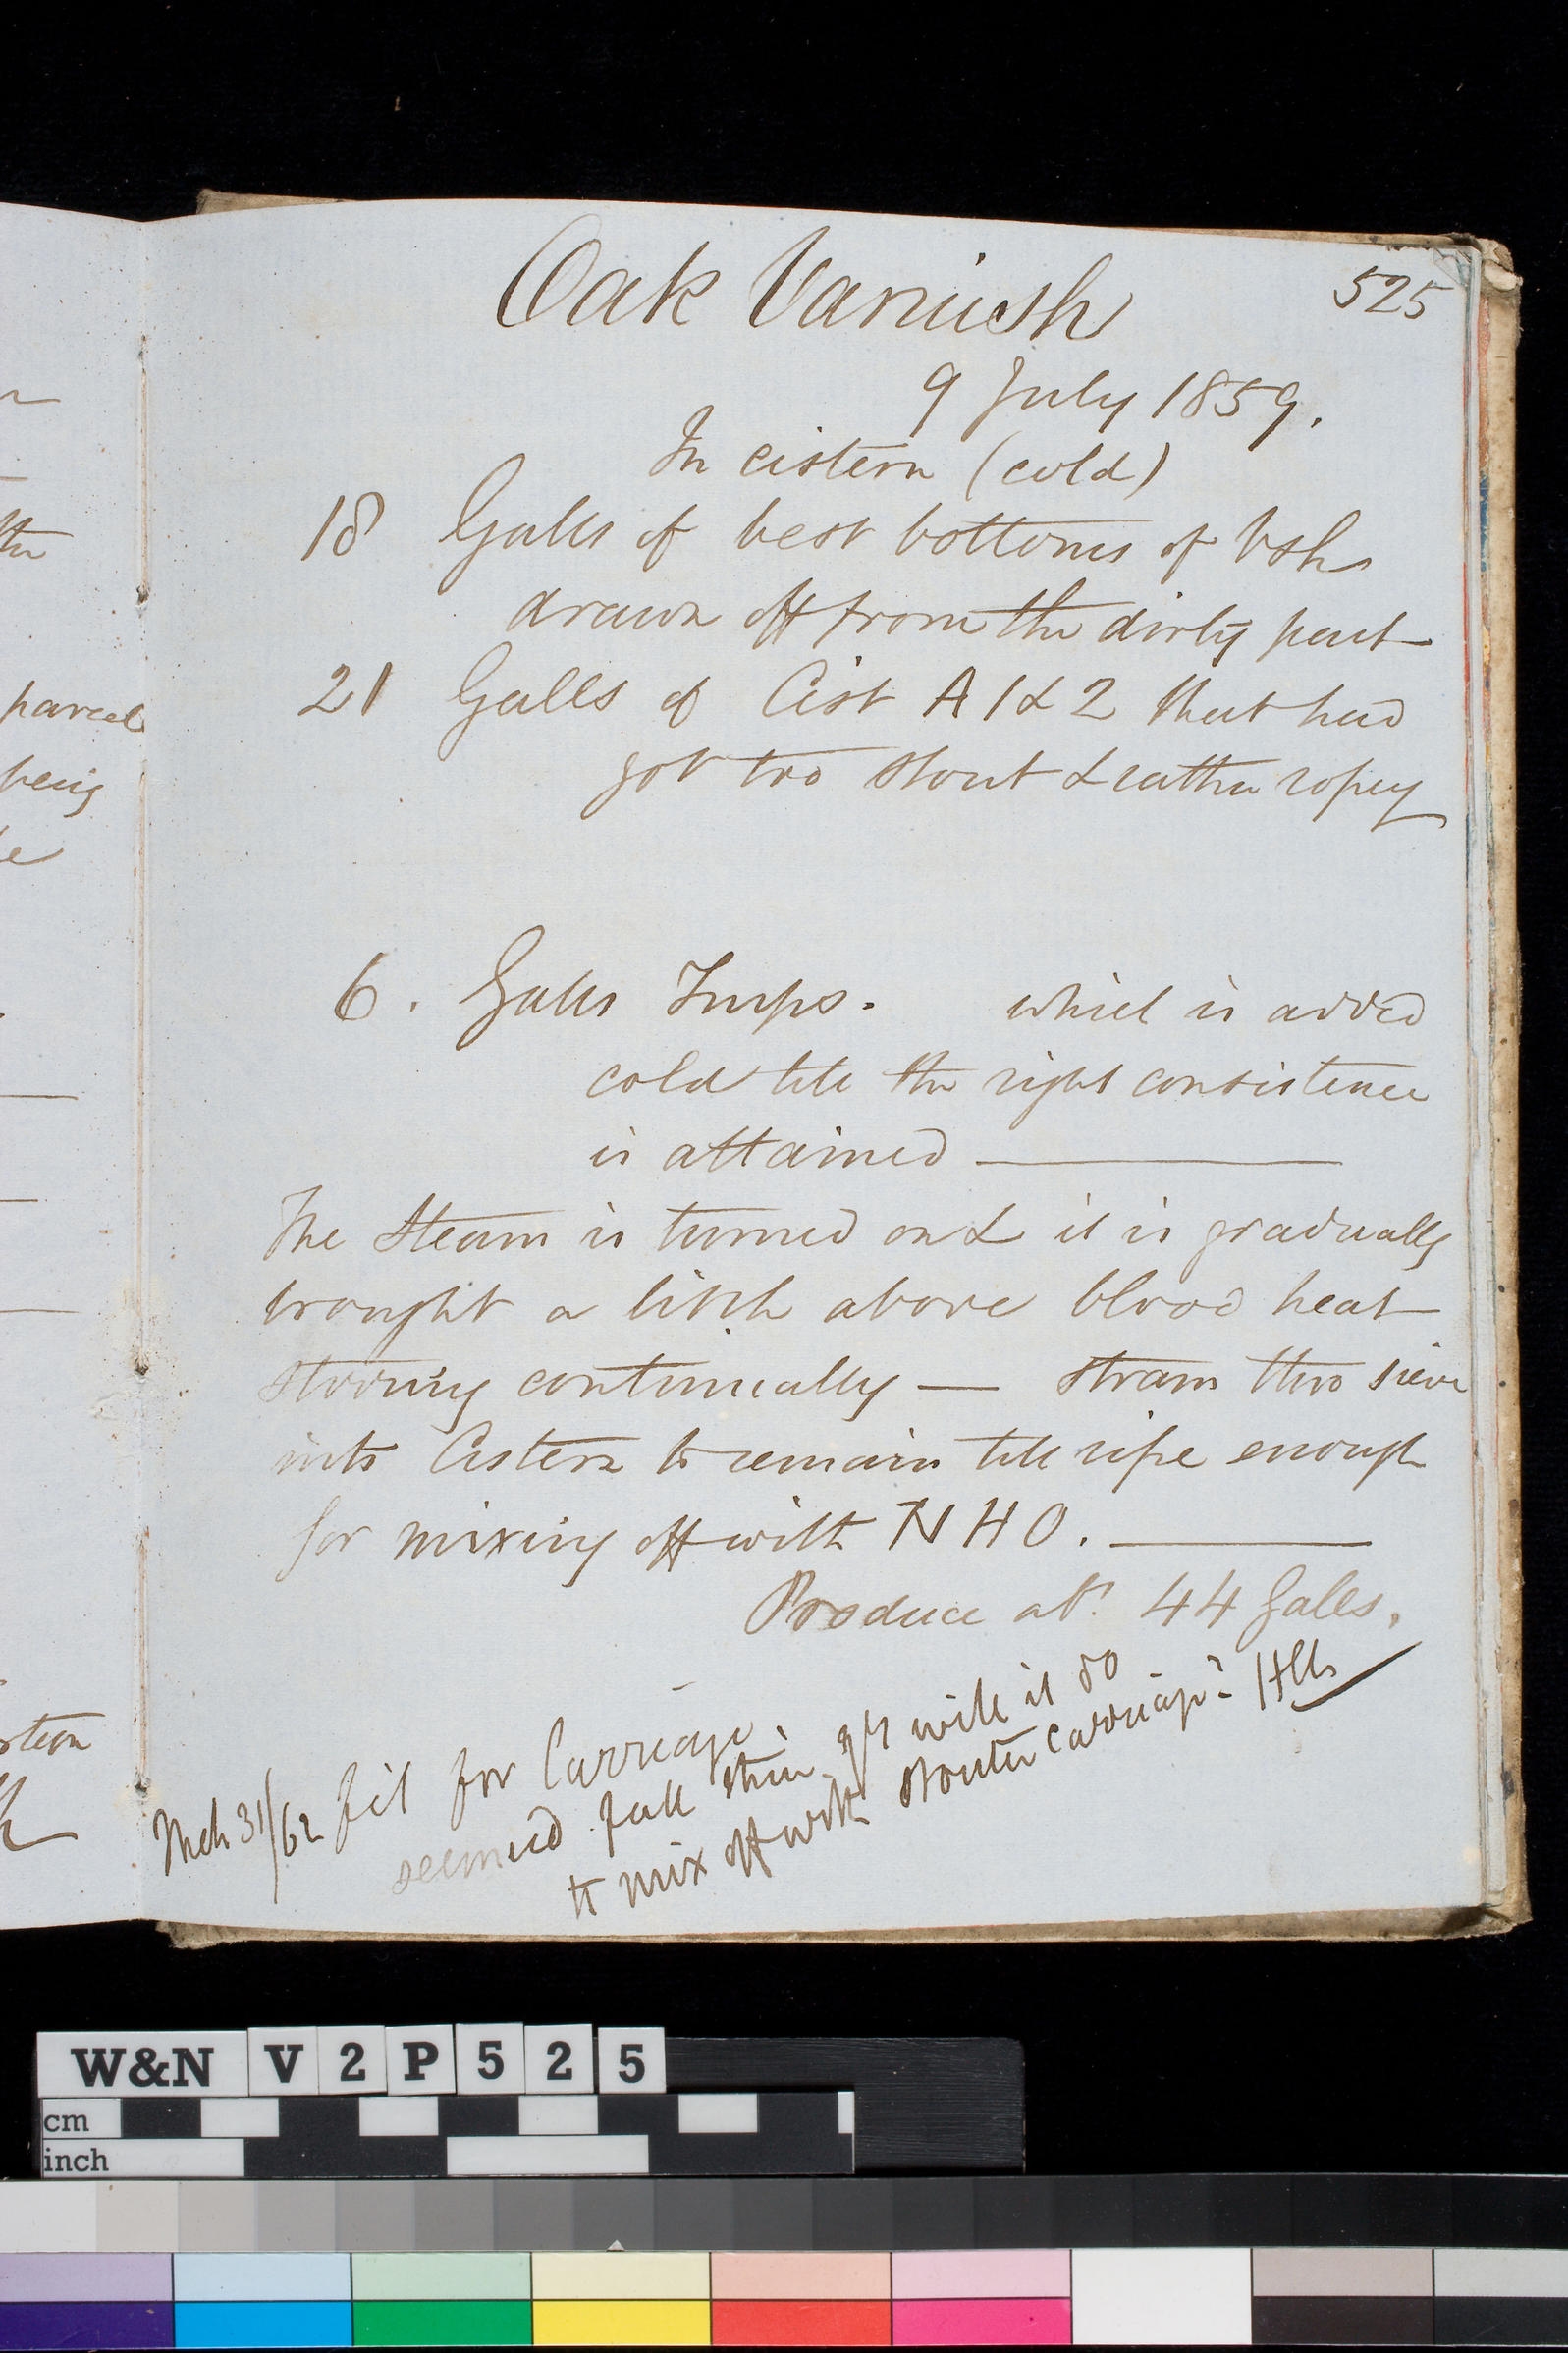 525
Oak Varnish
9 July 1859.
In cistern (cold)
18 Galls of best bottoms of Vsh
drawn off from the dirty part
21 Galls of Cist A 1 & 2 that had
got too stout & rather ropey
6. Galls Turps. which is added
cold till the right consistence
is attained
The Steam is turned on & it is gradually
brought a little above blood heat
stirring continually — strain thro sieve
into Cistern to remain till ripe enough
for mixing off with N H O.
Produce abt. 44 Galls.
Mch 31/62 fit for Carriage.
seemed full thin. will it do
to mix off with stouter carriage?
parcel
being
W&N V 2 P 5 2 5
cm
inch